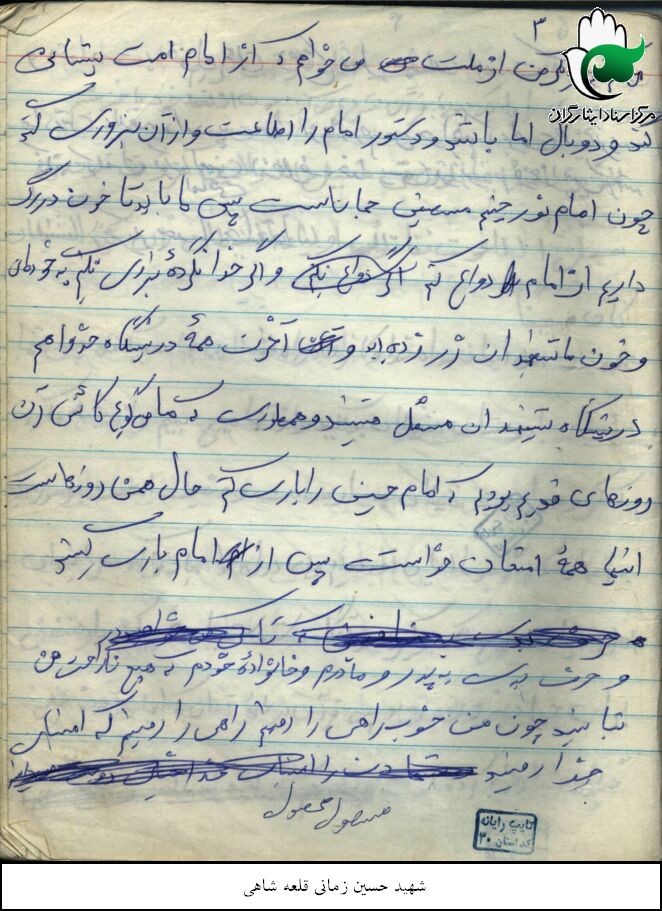 ۳
مرکز اسناد ایثارگران
من از ملت می خواهم که از امام امت پشتیبانی
کنند و دوبال اما باشند و دستور امام را اطاعت و از آن پیروری کنند
چون امام نور چشم مسعینی جماناست پس ما باید تا خون در رگ
داریم از امام دواع کنیم و اگر خدا نکرده
و خون ما شهیدان زر زده اید و آخرن همۀ در پیشگاه خدا و هم
در پیشگاه شهیدان مسئول هستید و همانطوری که ما می گویم کاش آن
روزهای قدیم بودیم که امام حسین را یاری کنیم حال همین روزهاست
اینها همۀ امتحان خداست پس از امام یاری کنید
و حرف به پدر و مادرم و خانوادۀ خودم که هیچ ناراحت من
نباشید چون من خوب راهی را رفتم راهی را رفتم که
خدا رفتند
تایپ رایانه
کد استان ۳۰
شهید حسین زمانی قلعه شاهی